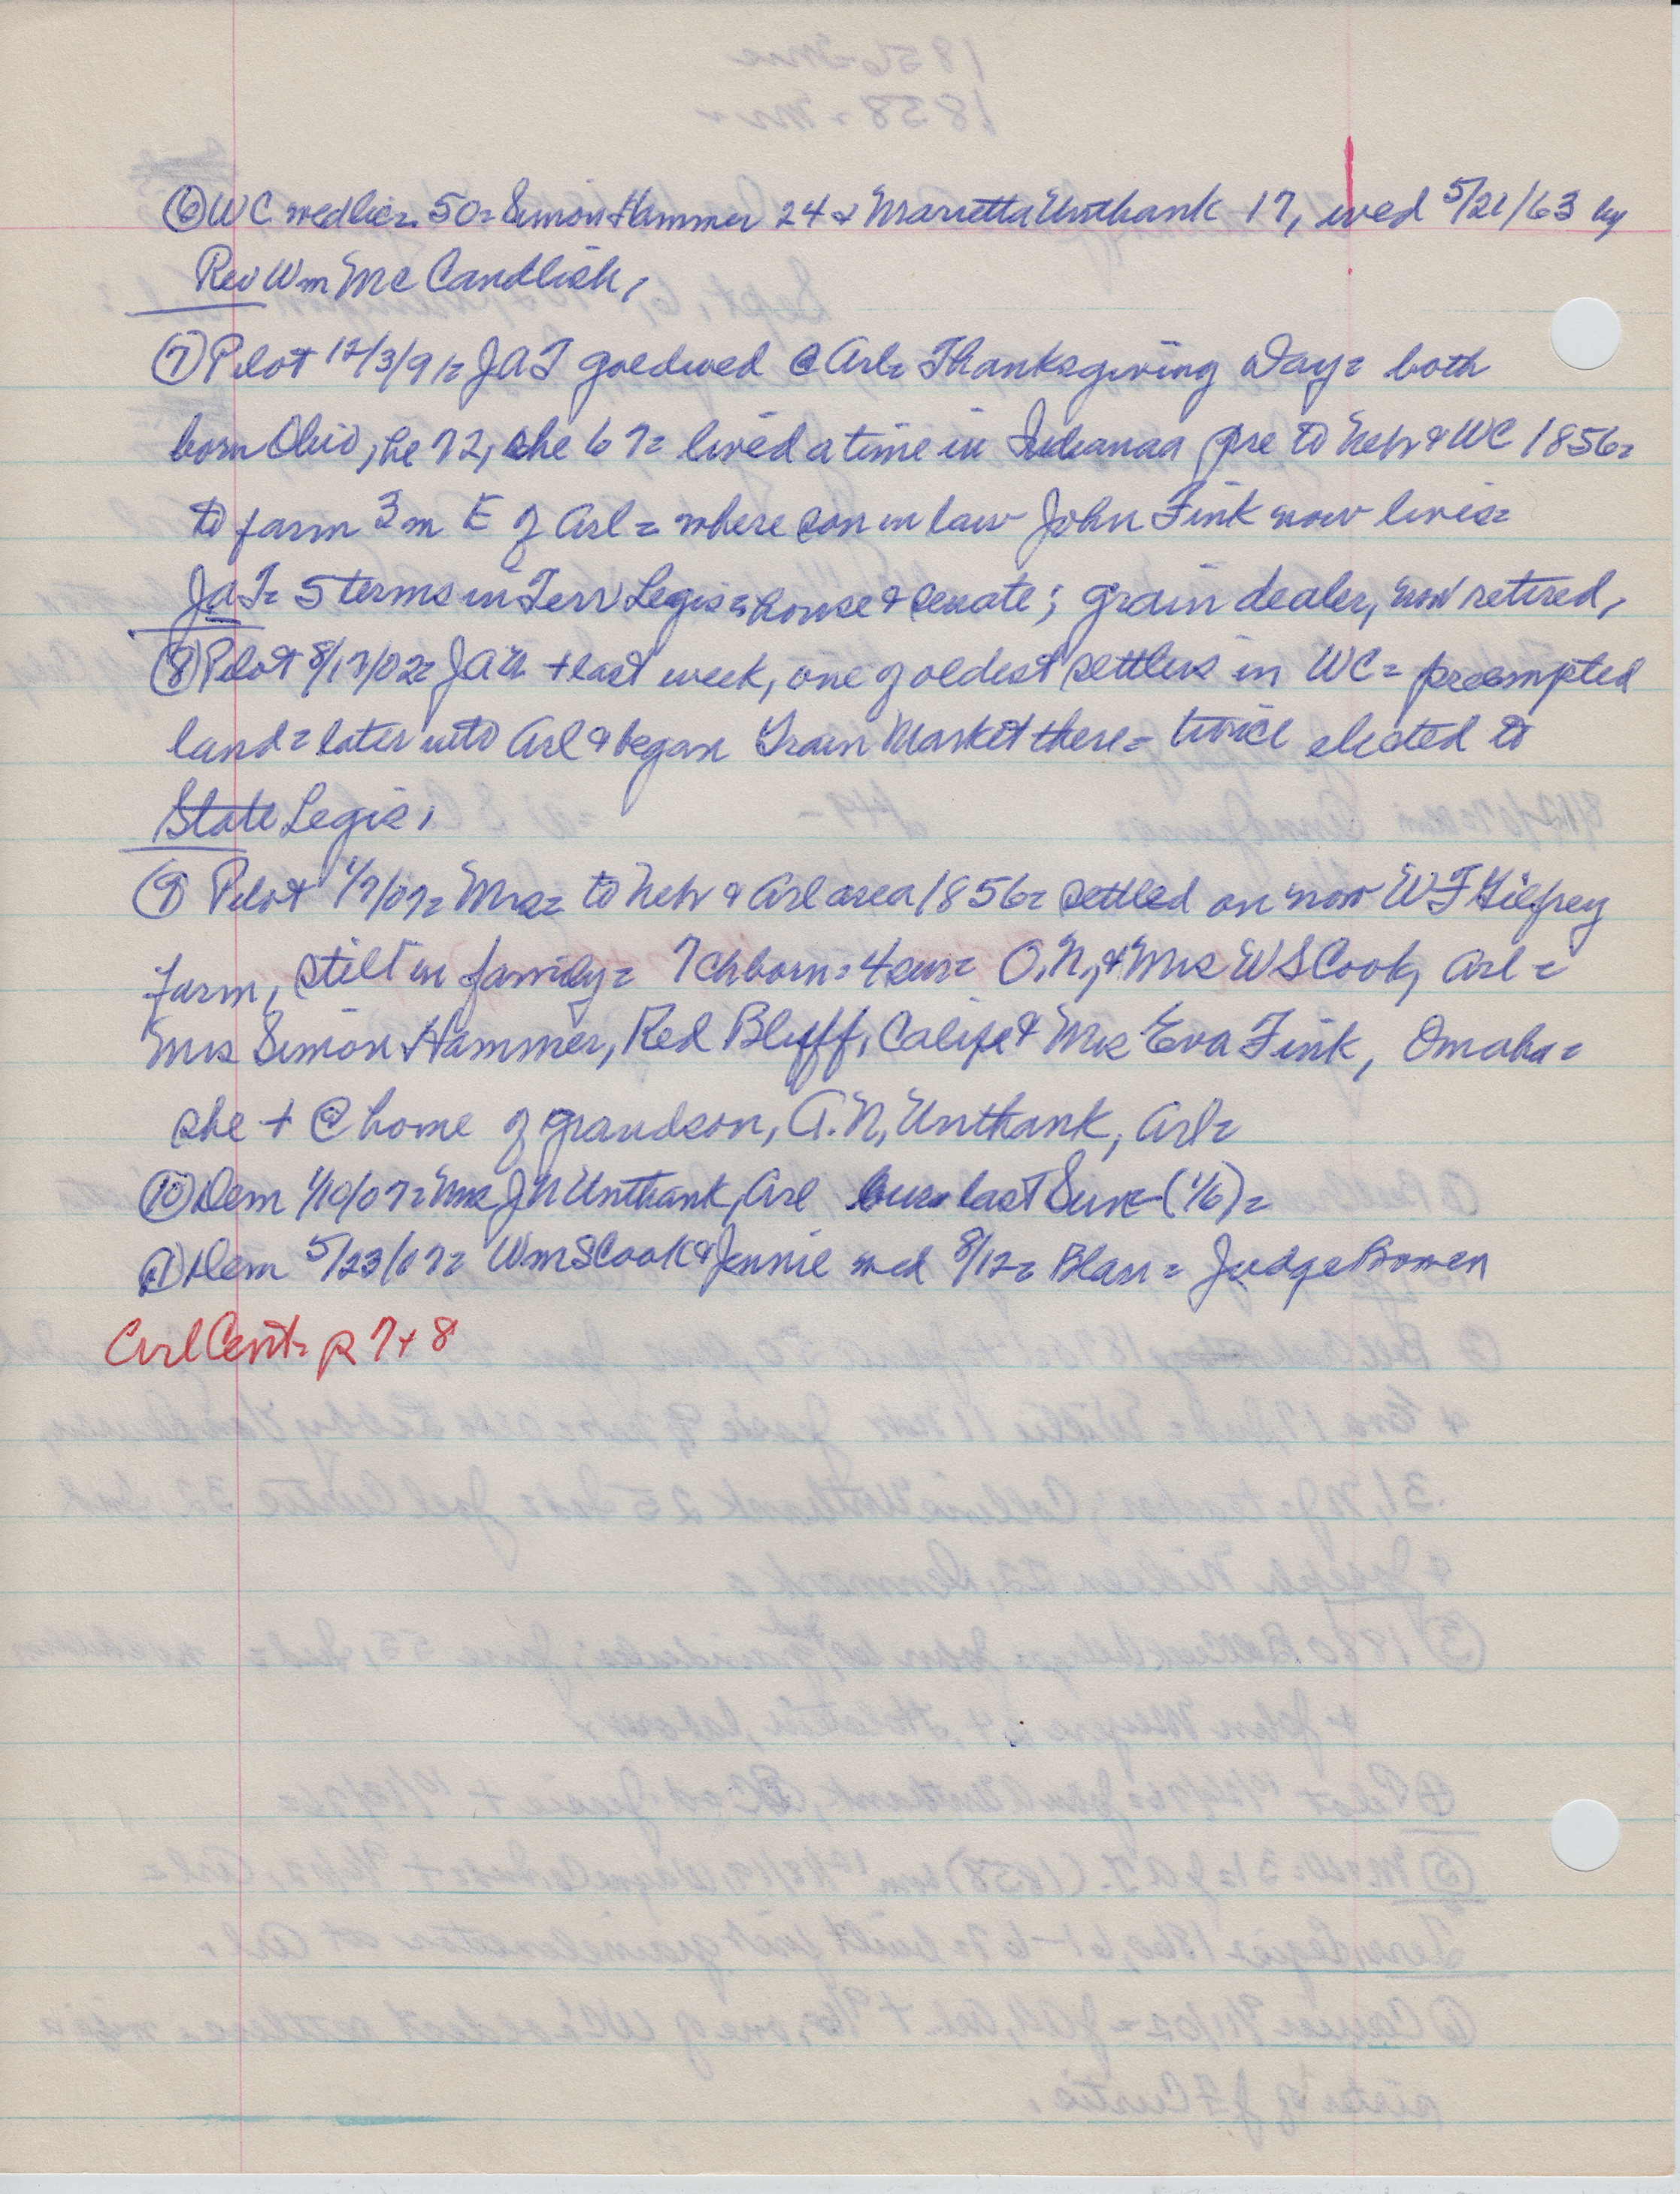 ⑥ WC wedlic= 50= Simon Hammer 24 & Marietta Unthank 17, wed 5/21/63 by
Rev Wm McCandlish,
⑦ Pilot 12/3/91= JAT goldwed @ Arl= Thanksgiving Day= both
born Ohio, he 72, she 67= lived a time in Indianaa pre to Nebr & WC 1856=
to farm 3 m E of Arl= where son in law John Fink now lives=
JAT= 5 terms in Terr Legis= house & senate; grain dealer, now retired,
⑧ Pilot 8/17/02= JAU + last week, one of oldest settlers in WC= preempted
land= later into Arl & began Grain Market there= twice elected to
State Legis,
⑨ Pilot 1/7/07= Mrs= to Nebr & Arl area 1856= settled on now WF Gilfrey
farm, still in family= 7 ch born= 4 sur= O.N., & Mrs WS Cook, Arl=
Mrs Simon Hammer, Red Bluff, Calif & Mrs Eva Fink, Omaha=
she + @ home of grandson, A.N. Unthank, Arl=
⑩ Dem 1/10/07= Mrs JN Unthank, Arl last Sun (1/6)=
⑪ Dem 5/23/07= Wm S Cook & Jennie wed 8/12= Blair= Judge Bowen
Arl Cent= p 7 + 8